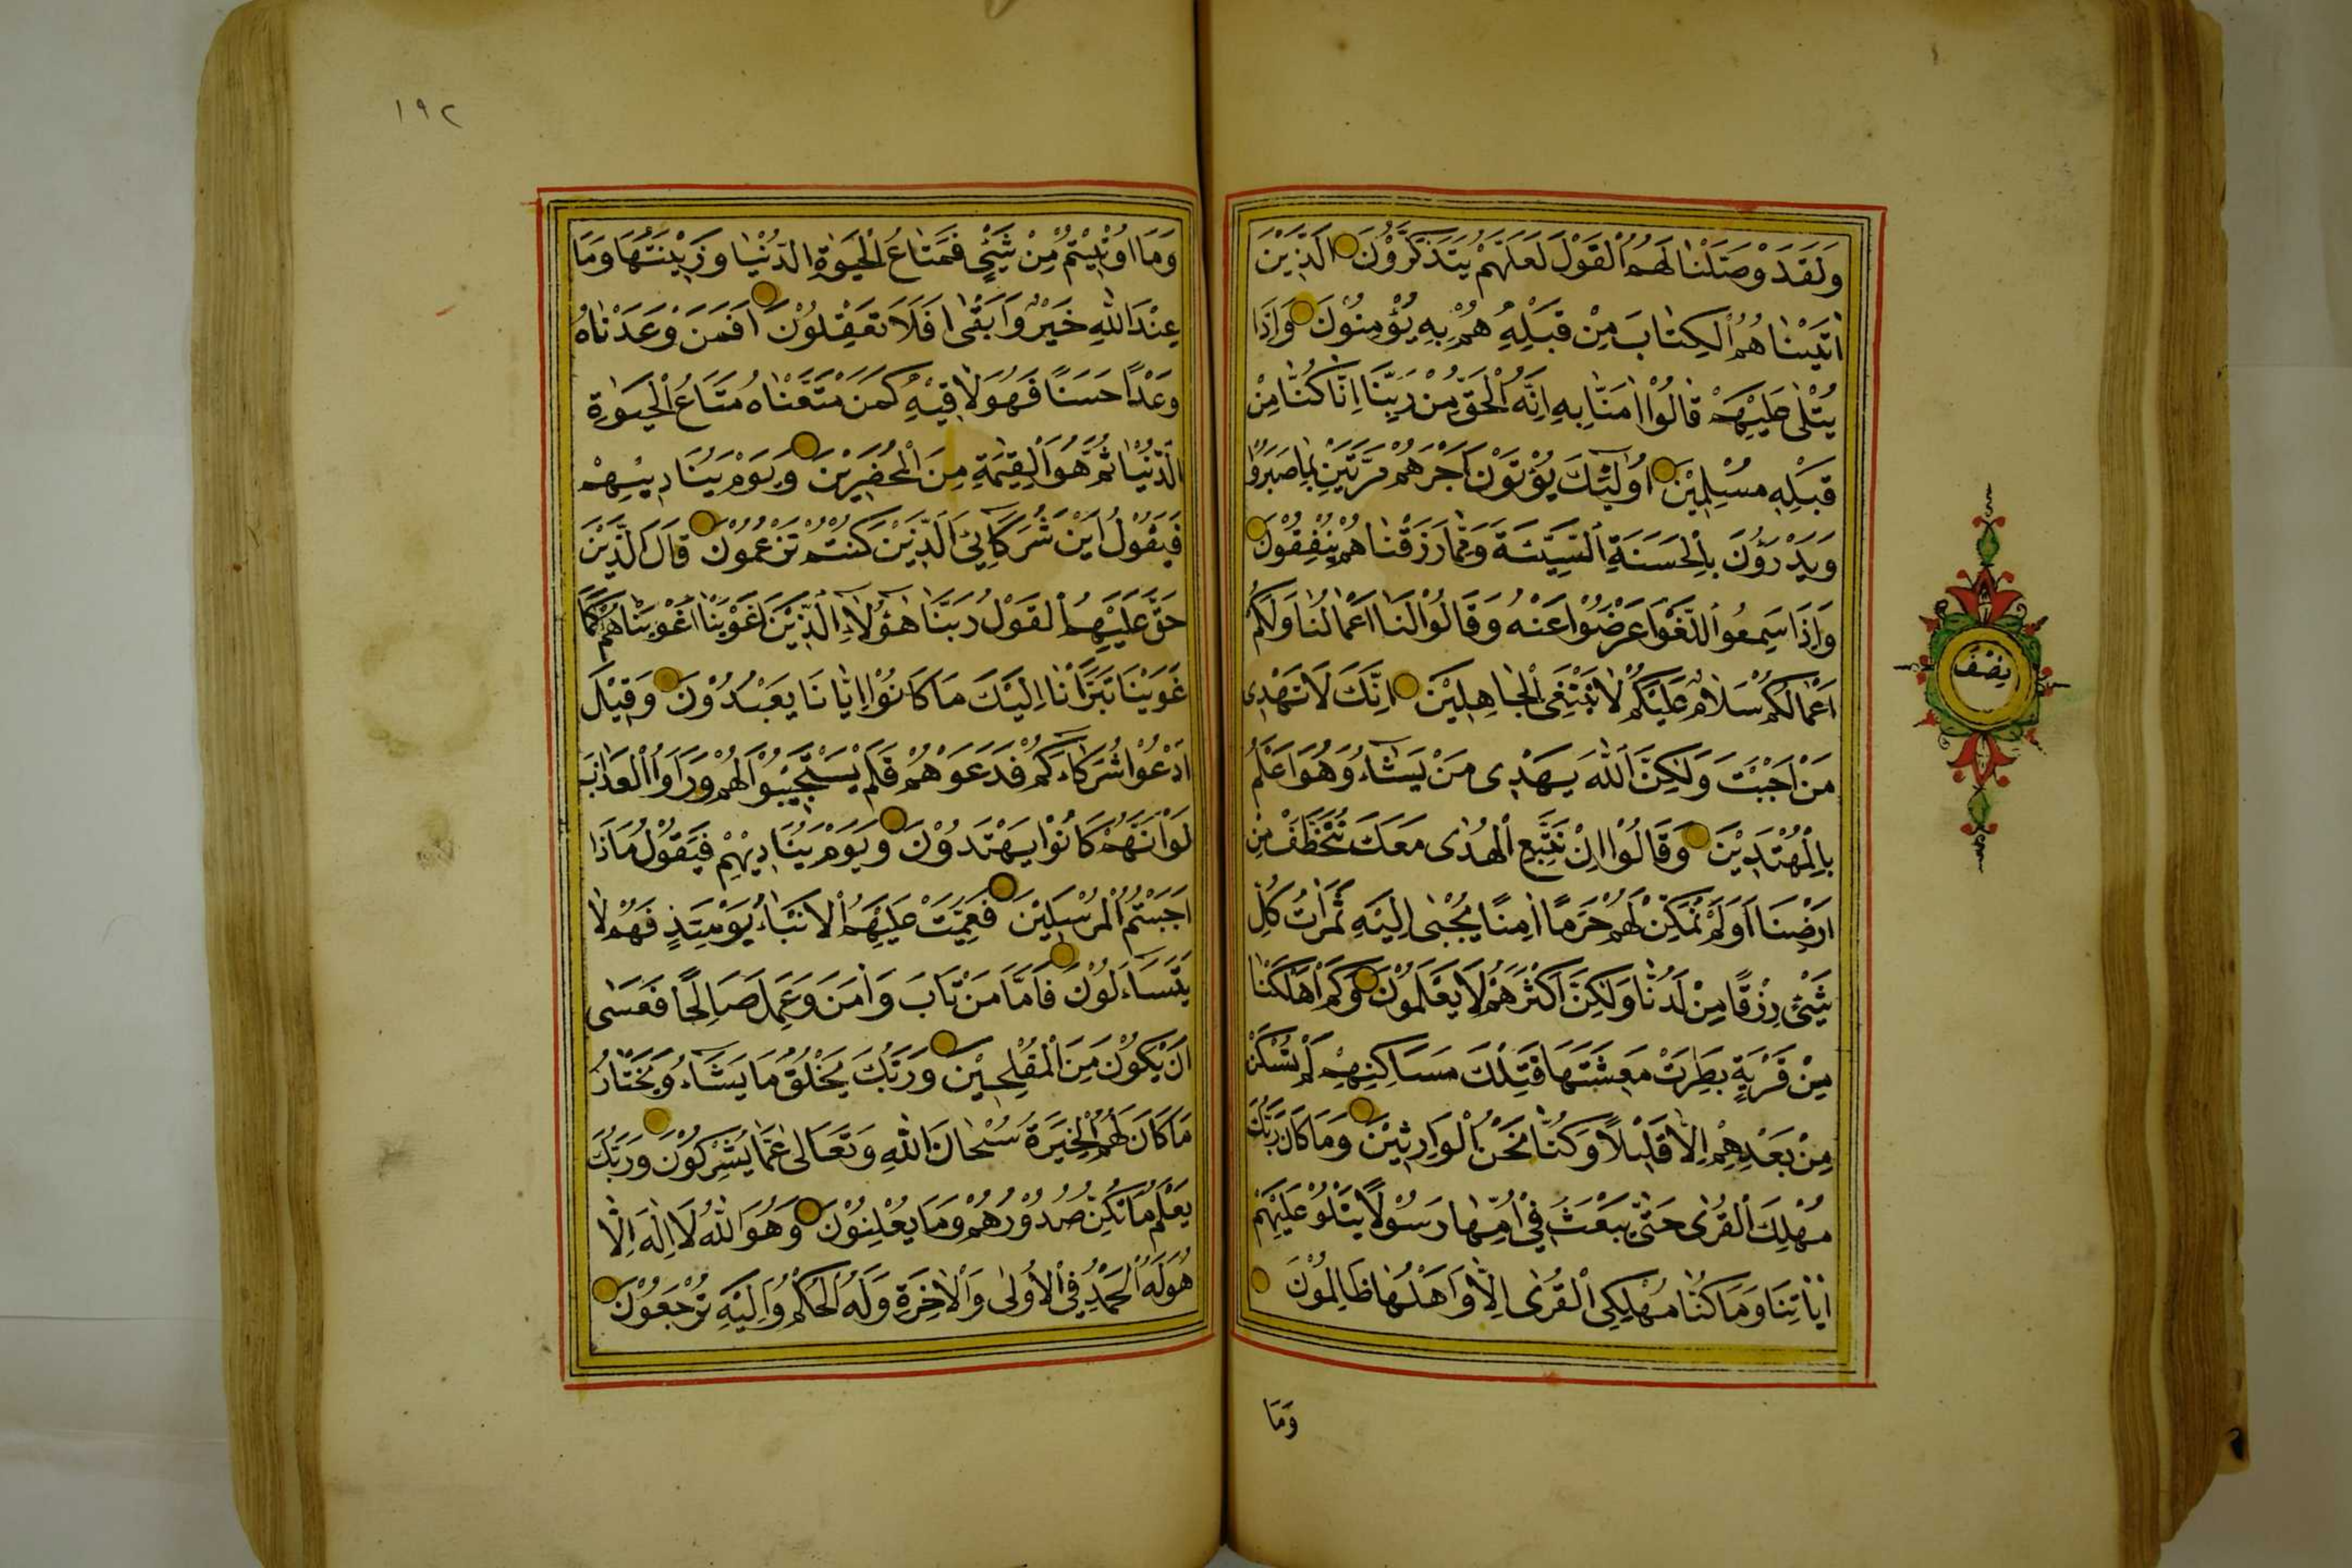 وَلَقَدْ وَصَّلْنَا لَهُمُ الْقَوْلَ لَعَلَّهُمْ يَتَذَكَّرُونَ الَّذِينَ
اٰتَيْنَاهُمُ الْكِتَابَ مِنْ قَبْلِهِ هُمْ بِهِ يُؤْمِنُونَ وَاِذَا
يُتْلٰى عَلَيْهِمْ قَالُوْا اٰمَنَّا بِهِ اِنَّهُ الْحَقُّ مِنْ رَبِّنَا اِنَّا كُنَّا مِنْ
قَبْلِهِ مُسْلِمِيْنَ اُولٰئِكَ يُؤْتَوْنَ اَجْرَهُمْ مَرَّتَيْنِ بِمَا صَبَرُوا
وَيَدْرَؤُنَ بِالْحَسَنَةِ السَّيِّئَةَ وَمِمَّا رَزَقْنَاهُمْ يُنْفِقُوْنَ
وَاِذَا سَمِعُوا اللَّغْوَ اَعْرَضُوْا عَنْهُ وَقَالُوْا لَنَا اَعْمَالُنَا وَلَكُمْ
اَعْمَالُكُمْ سَلَامٌ عَلَيْكُمْ لَا نَبْتَغِى الْجَاهِلِيْنَ اِنَّكَ لَا تَهْدِى
مَنْ اَحْبَبْتَ وَلٰكِنَّ اللّٰهَ يَهْدِى مَنْ يَشَاءُ وَهُوَ اَعْلَمُ
بِالْمُهْتَدِيْنَ وَقَالُوْا اِنْ نَتَّبِعِ الْهُدٰى مَعَكَ نُتَخَطَّفْ مِنْ
اَرْضِنَا اَوَلَمْ نُمَكِّنْ لَهُمْ حَرَمًا اٰمِنًا يُجْبٰى اِلَيْهِ ثَمَرَاتُ كُلِّ
شَيْئٍ رِزْقًا مِنْ لَدُنَّا وَلٰكِنَّ اَكْثَرَهُمْ لَا يَعْلَمُوْنَ وَكَمْ اَهْلَكْنَا
مِنْ قَرْيَةٍ بَطِرَتْ مَعِيشَتَهَا فَتِلْكَ مَسَاكِنُهُمْ لَمْ تُسْكَنْ
مِنْ بَعْدِهِمْ اِلَّا قَلِيْلًا وَكُنَّا نَحْنُ الْوَارِثِيْنَ وَمَا كَانَ رَبُّكَ
مُهْلِكَ الْقُرٰى حَتّٰى يَبْعَثَ فِيْ اُمِّهَا رَسُوْلًا يَتْلُوْ عَلَيْهِمْ
اٰيَاتِنَا وَمَا كُنَّا مُهْلِكِى الْقُرٰى اِلَّا وَاَهْلُهَا ظَالِمُوْنَ
وَمَا
نِصْف
١٩٢
وَمَا اُوْتِيْتُمْ مِنْ شَيْئٍ فَمَتَاعُ الْحَيٰوةِ الدُّنْيَا وَزِيْنَتُهَا وَمَا
عِنْدَ اللّٰهِ خَيْرٌ وَاَبْقٰى اَفَلَا تَعْقِلُوْنَ اَفَمَنْ وَعَدْنَاهُ
وَعْدًا حَسَنًا فَهُوَ لَاقِيْهِ كَمَنْ مَتَّعْنَاهُ مَتَاعَ الْحَيٰوةِ
الدُّنْيَا ثُمَّ هُوَ الْقِيٰمَةِ مِنَ الْمُحْضَرِيْنَ وَيَوْمَ يُنَادِيْهِمْ
فَيَقُوْلُ اَيْنَ شُرَكَائِيَ الَّذِيْنَ كُنْتُمْ تَزْعُمُوْنَ قَالَ الَّذِيْنَ
حَقَّ عَلَيْهِمُ الْقَوْلُ رَبَّنَا هٰؤُلَاءِ الَّذِيْنَ اَغْوَيْنَا اَغْوَيْنَاهُمْ كَمَا
غَوَيْنَا تَبَرَّاْنَا اِلَيْكَ مَا كَانُوْا اِيَّانَا يَعْبُدُوْنَ وَقِيْلَ
ادْعُوْا شُرَكَاءَكُمْ فَدَعَوْهُمْ فَلَمْ يَسْتَجِيْبُوْا لَهُمْ وَرَاَوُا الْعَذَابَ
لَوْ اَنَّهُمْ كَانُوْا يَهْتَدُوْنَ وَيَوْمَ يُنَادِيْهِمْ فَيَقُوْلُ مَاذَا
اَجَبْتُمُ الْمُرْسَلِيْنَ فَعَمِيَتْ عَلَيْهِمُ الْاَنْبَاءُ يَوْمَئِذٍ فَهُمْ لَا
يَتَسَاءَلُوْنَ فَاَمَّا مَنْ تَابَ وَاٰمَنَ وَعَمِلَ صَالِحًا فَعَسٰى
اَنْ يَكُوْنَ مِنَ الْمُفْلِحِيْنَ وَرَبُّكَ يَخْلُقُ مَا يَشَاءُ وَيَخْتَارُ
مَا كَانَ لَهُمُ الْخِيَرَةُ سُبْحَانَ اللّٰهِ وَتَعَالٰى عَمَّا يُشْرِكُوْنَ وَرَبُّكَ
يَعْلَمُ مَا تُكِنُّ صُدُوْرُهُمْ وَمَا يُعْلِنُوْنَ وَهُوَ اللّٰهُ لَا اِلٰهَ اِلَّا
هُوَ لَهُ الْحَمْدُ فِى الْاُولٰى وَالْاٰخِرَةِ وَلَهُ الْحُكْمُ وَاِلَيْهِ تُرْجَعُوْنَ